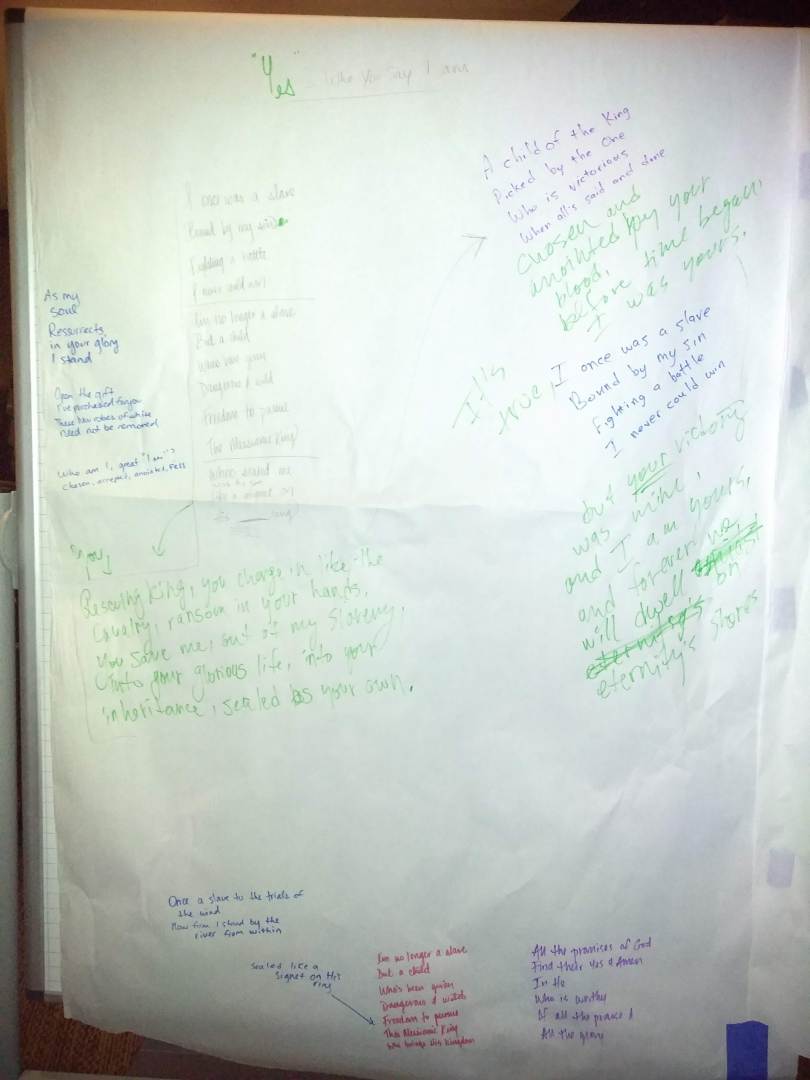 "Yes" - Who you say I am
I once was a slave
Bound by my
Fighting a battle
I never could win
I'm no longer a slave
But a child
Who's been given
Dangerous & wild
Freedom to pursue
The Messianic King
Who's sealed me
Like a signet on
his ____ ring
As my
soul
Ressurrects
in your glory
I stand
Open the gift
I've purchased for you
These new robes of white
Need not be removed
Who am I, great "I am"?
Chosen, accepted, anointed,
A child of the King
Picked by the One
Who is victorious
When all's said and done
Chosen and
anointed by your
blood,
before time began,
I was yours.
It's
true, I once was a slave
Bound by my sin
Fighting a battle
I never could win
but your victory
was mine,
and I am yours,
and forever
will dwell on
eternity's
eternity's shores
Rescuing King, you charge in like the
Cavalry, ransom in your hands.
You save me, out of my slavery,
Into your glorious life, into your
inheritance, sealed as your own.
Once a slave to the trials of
the wind
Now firm I stand by the
river from within
Sealed like a
Signet on His
ring
I'm no longer a slave
But a child
Who's been given
Dangerous & wild
Freedom to pursue
This Messianic King
who brings His Kingdom
All the promises of God
Find their Yes & Amen
In He
Who is worthy
Of all the praise &
All the glory